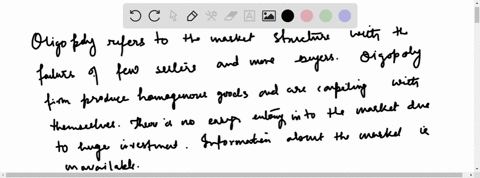 Oligopoly refers to the market structure with the
failure of few sellers and more buyers. Oigopoly
firm produce homogenous goods and are competing with
themselves. There is no easy entering into the market due
to huge investment. Information about the market is
unavailable.